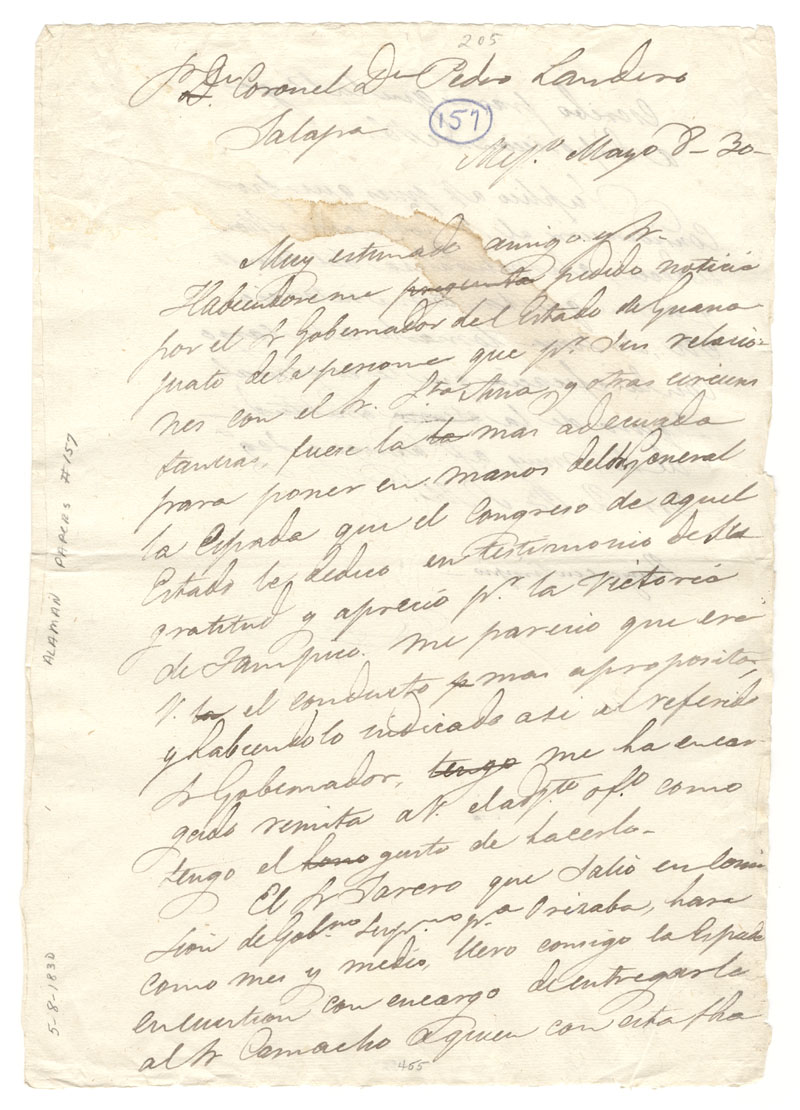 205
Sr. Dn. Coronel Dn Pedro Landero
Jalapa
157
Mejo. Mayo 8-30-
Muy estimado amigo y Sr.
Habiendoseme pregunta pedido noticia
por el Sr Gobernador del Estado de Guana
juato dela persona que pr. sus relacio-
nes con el Sr. Sta Ana, y otras circuns
tancias, fuese la la mas adecuada
para poner en manos del General
la Espada que el Congreso de aquel
Estado le dedico en testimonio de su
gratitud y aprecio pr. la Victoria
de Tampico. me parecio que era
V. la el conducto mas aproposito,
y habiendolo indicado asi al referido
Sr Gobernador, tengo me ha encar
gado remita a V. el adjto ofo. como
tengo el hono gusto de hacerlo-
El Sr Tarero que salio en Comi
sion del Gobno Supmo pa Orizaba, hara
como mes y medio, llevo consigo la Espada
en cuestion con encargo de entregarla
al Sr Camacho a quien con esta fha
455
ALAMAN PAPERS #157
5-8-1830